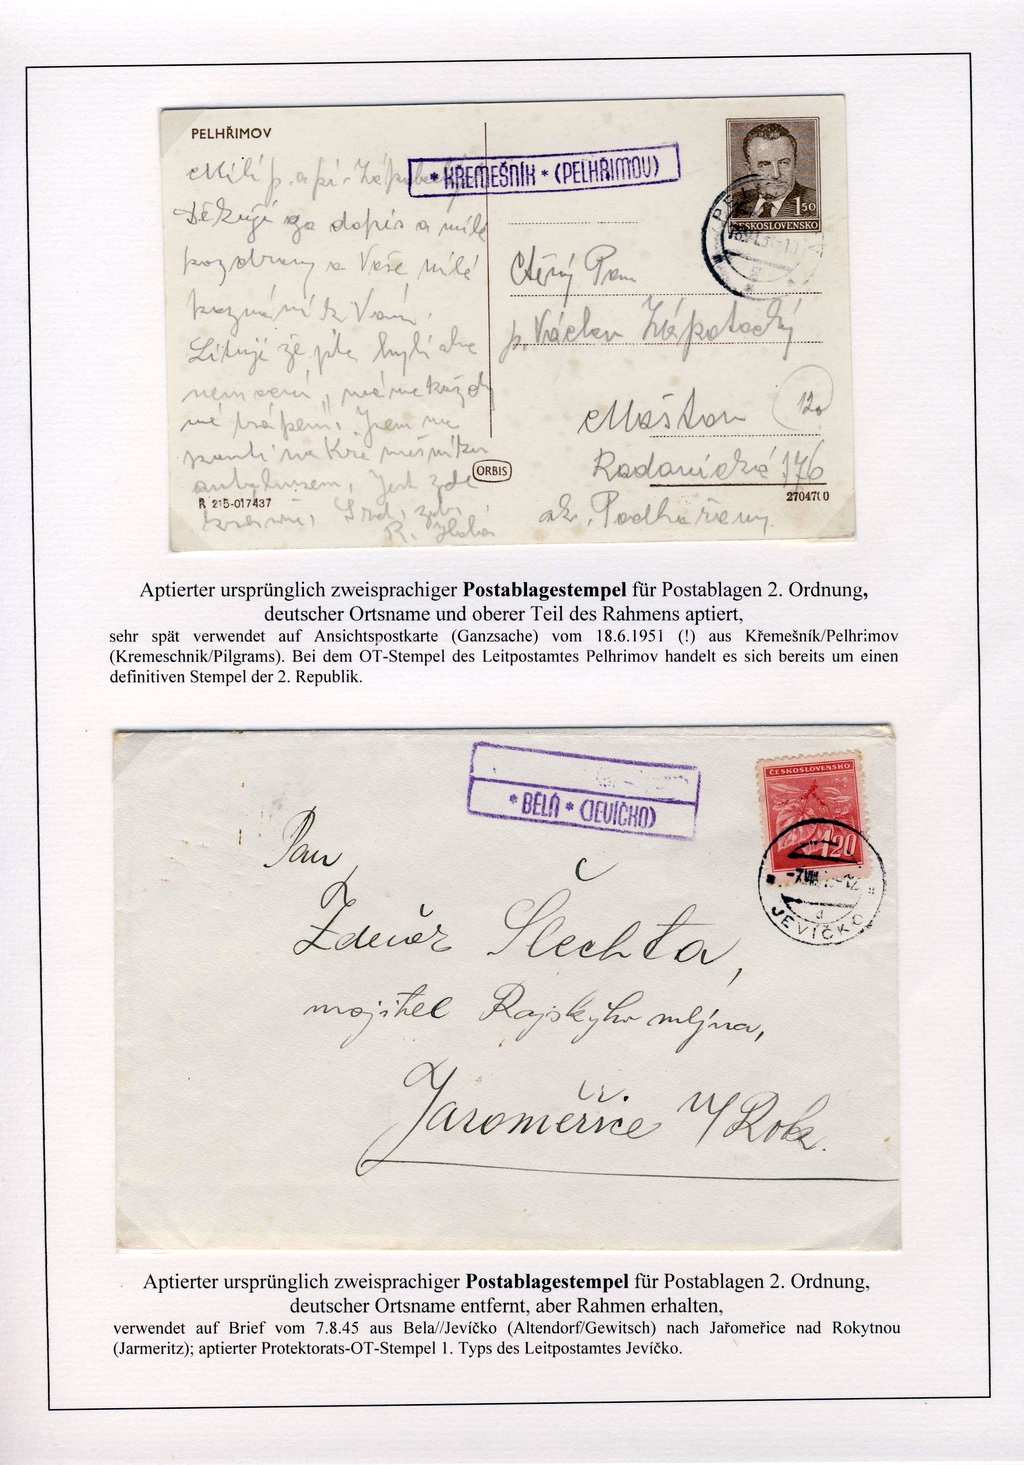 PELHŘIMOV
* KŘEMEŠNÍK * (PELHŘIMOV)
1 50
ČESKOSLOVENSKO
Milí p. a pí.
Děkuji za dopis a milé
pozdravy a Vaše milé
Vám.
Lituji že jste byli
nemocni,
Jsem na
Jest zde
R.
Ctěný Pan
p. Václav Zápotocký
12
Radanická 176
ORBIS
R 215-017437
270470
Aptierter ursprünglich zweisprachiger Postablagestempel für Postablagen 2. Ordnung,
deutscher Ortsname und oberer Teil des Rahmens aptiert,
sehr spät verwendet auf Ansichtspostkarte (Ganzsache) vom 18.6.1951 (!) aus Křemešník/Pelhrimov
(Kremeschnik/Pilgrams). Bei dem OT-Stempel des Leitpostamtes Pelhrimov handelt es sich bereits um einen
definitiven Stempel der 2. Republik.
* BĚLÁ * (JEVÍČKO)
ČESKOSLOVENSKO
1.20
JEVÍČKO
Pan
Zdeněk Šlechta,
majitel Rajského mlýna,
Jaroměřice n/Rok.
Aptierter ursprünglich zweisprachiger Postablagestempel für Postablagen 2. Ordnung,
deutscher Ortsname entfernt, aber Rahmen erhalten,
verwendet auf Brief vom 7.8.45 aus Bela//Jevíčko (Altendorf/Gewitsch) nach Jařomeřice nad Rokytnou
(Jarmeritz); aptierter Protektorats-OT-Stempel 1. Typs des Leitpostamtes Jevíčko.